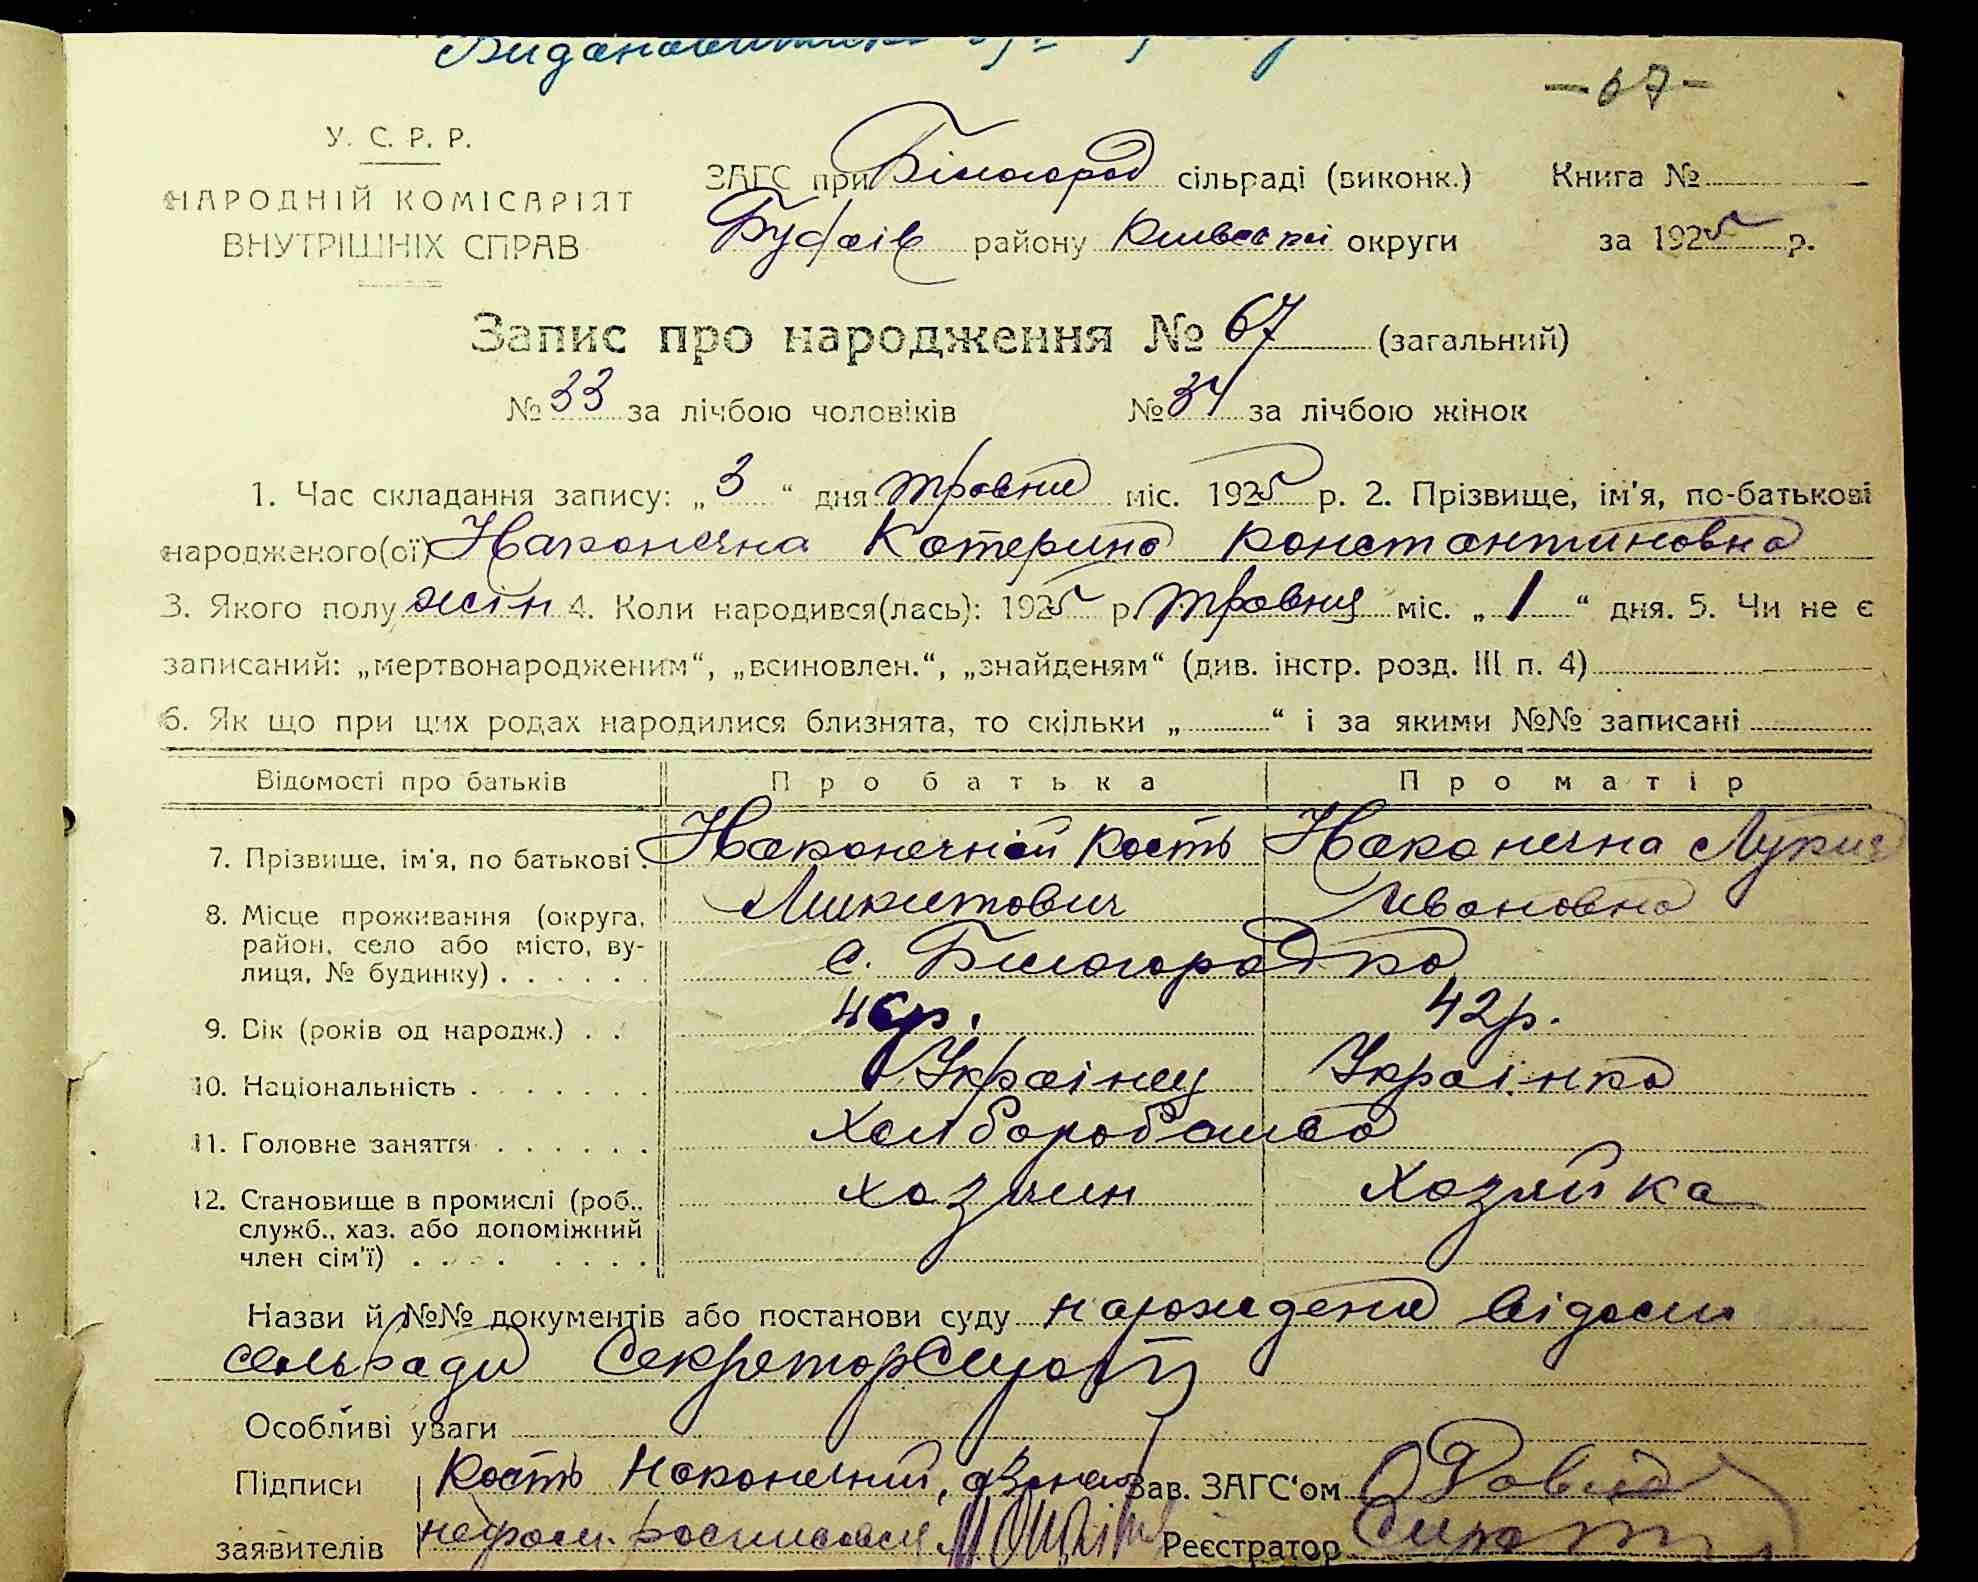 -67-
У. С. Р. Р.
НАРОДНІЙ КОМІСАРІЯТ
ВНУТРІШНІХ СПРАВ
ЗАГС при Білогород сільраді (виконк.) Книга №
Будаїв району Київської округи за 1925 р.
Запис про народження № 67 (загальний)
№ 33 за лічбою чоловіків № 34 за лічбою жінок
1. Час складання запису: „3“ дня травня міс. 1925 р. 2. Прізвище, ім'я, по-батькові
народженого(ої) Наконечна Катерина Константиновна
3. Якого полу жін 4. Коли народився(лась): 1925 р. травня міс. „1“ дня. 5. Чи не є
записаний: „мертвонародженим“, „всиновлен.“, „знайденям“ (див. інстр. розд. III п. 4)
6. Як що при цих родах народилися близнята, то скільки „ “ і за якими №№ записані
Відомості про батьків Про батька Про матір
7. Прізвище, ім'я, по батькові. Наконечний Кость Наконечна Лукия
Микитович Ивановна
8. Місце проживання (округа,
район, село або місто, ву-
лиця, № будинку) . . . . . . с. Білогородка
9. Вік (років од народж.) . . р. 42 р.
10. Національність . . . . . . . Українец Українка
11. Головне заняття . . . . . . Хліборобства
12. Становище в промислі (роб.,
служб., хаз. або допоміжний
член сім'ї) . . . . . . . . хозяин хозяйка
Назви й №№ документів або постанови суду
сельради Секретар
Особливі уваги
Підписи Кость Наконечний,
заявителів неграм. росписався
Зав. ЗАГС'ом
Реєстратор